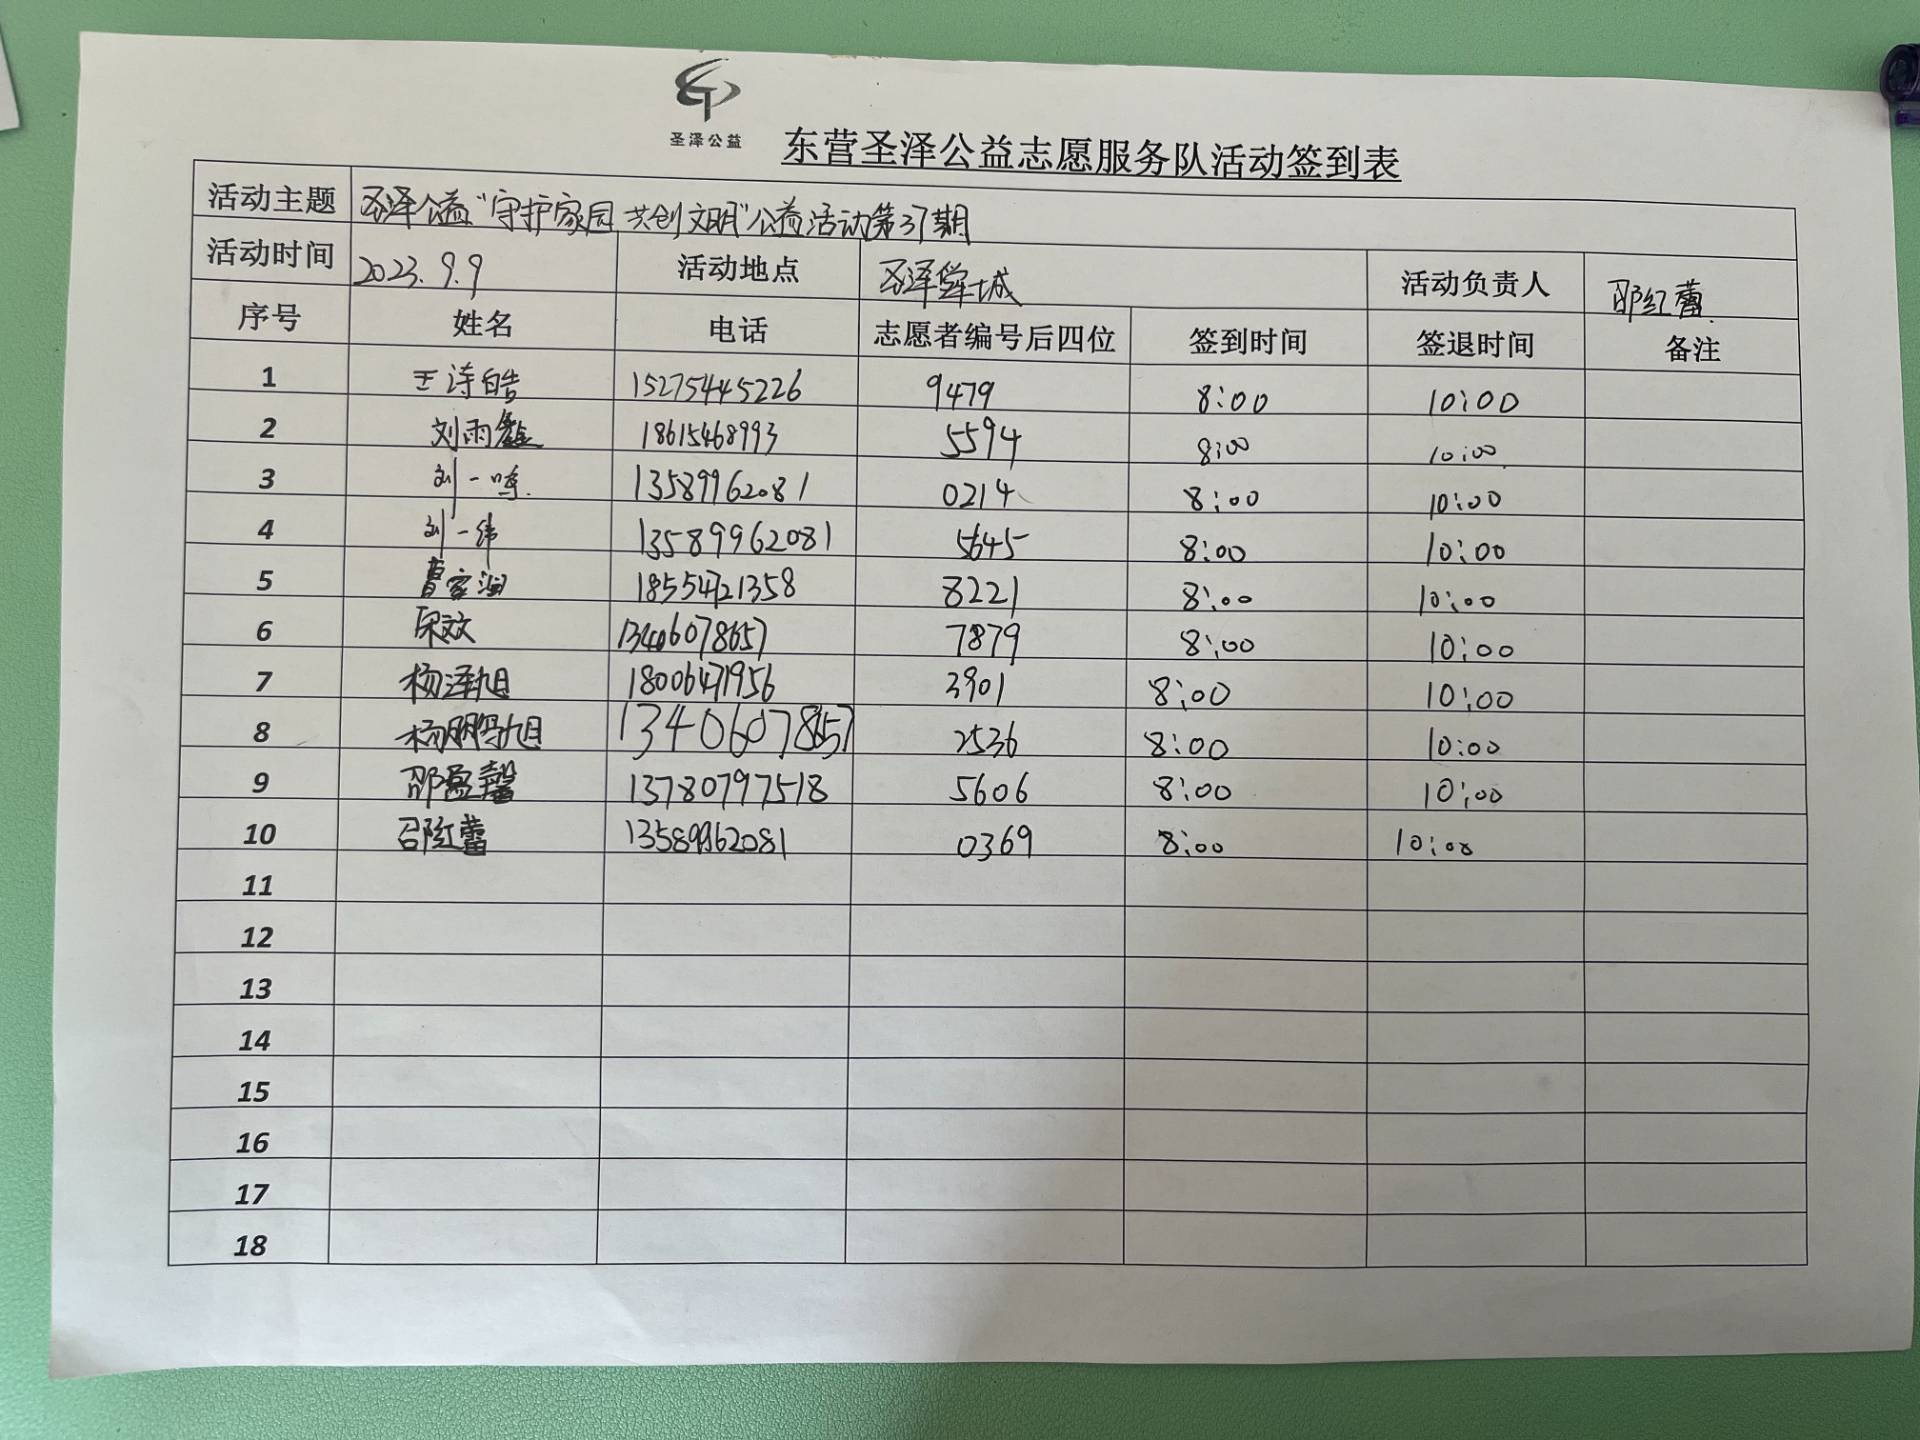 圣泽公益
东营圣泽公益志愿服务队活动签到表
活动主题 圣泽公益“守护家园 共创文明”公益活动第37期
活动时间 2023.9.9 活动地点 圣泽学城 活动负责人 邵红蕾
序号 姓名 电话 志愿者编号后四位 签到时间 签退时间 备注
1 王涛皓 15275445226 9479 8:00 10:00
2 刘雨鑫 18615468993 5594 8:00 10:00
3 刘一鸣 13589962081 0214 8:00 10:00
4 刘一纬 13589962081 5645 8:00 10:00
5 曹家润 18554721358 8221 8:00 10:00
6 13406078657 7879 8:00 10:00
7 杨泽旭 18006471956 3901 8:00 10:00
8 杨鹏旭 13406078657 2536 8:00 10:00
9 邵盈馨 13780797518 5606 8:00 10:00
10 邵红蕾 13589962081 0369 8:00 10:00
11
12
13
14
15
16
17
18